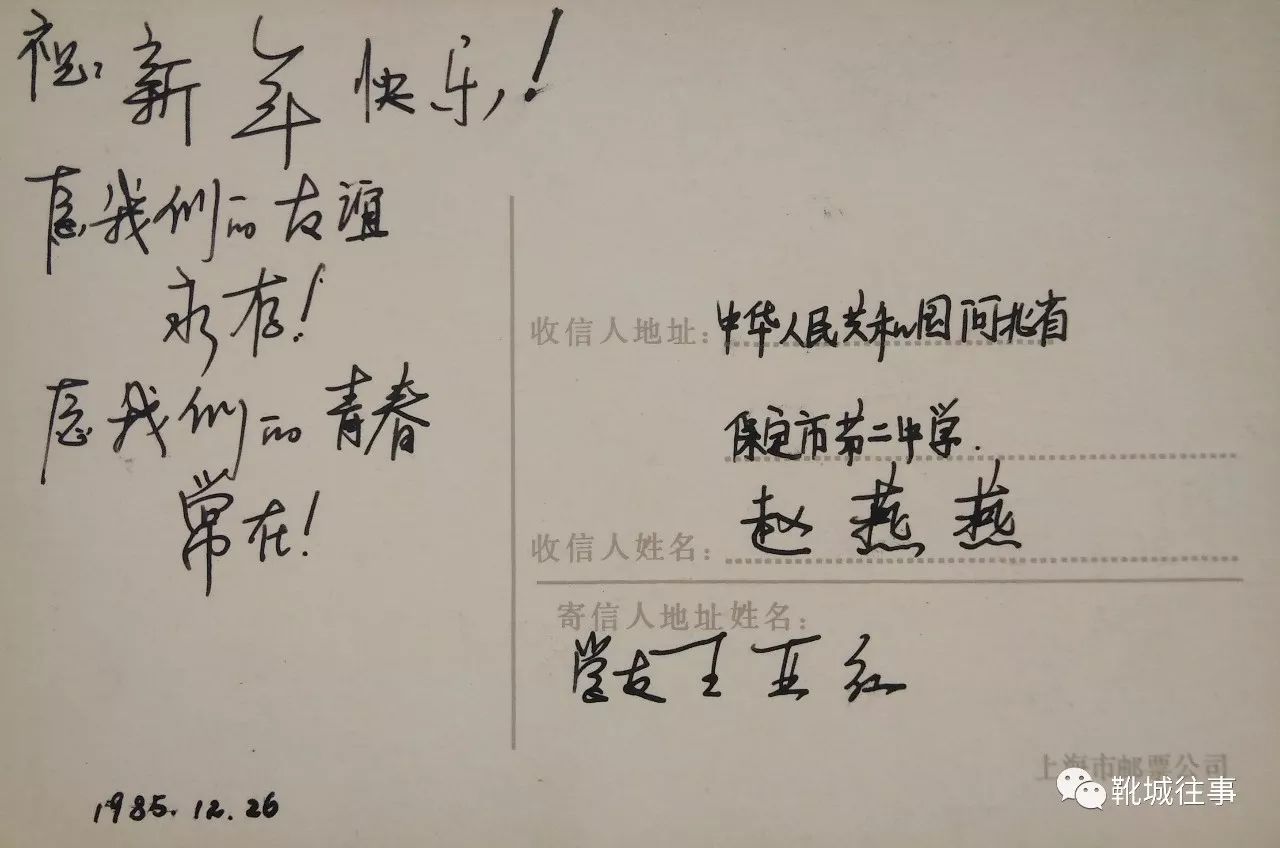 祝:新年快乐,!
愿我们的友谊
永存!
愿我们的青春
常在!
1985.12.26
收信人地址:中华人民共和国河北省
保定市第二中学.
收信人姓名:赵燕燕
寄信人地址姓名:
学友王亚红
上海市邮票公司
靴城往事